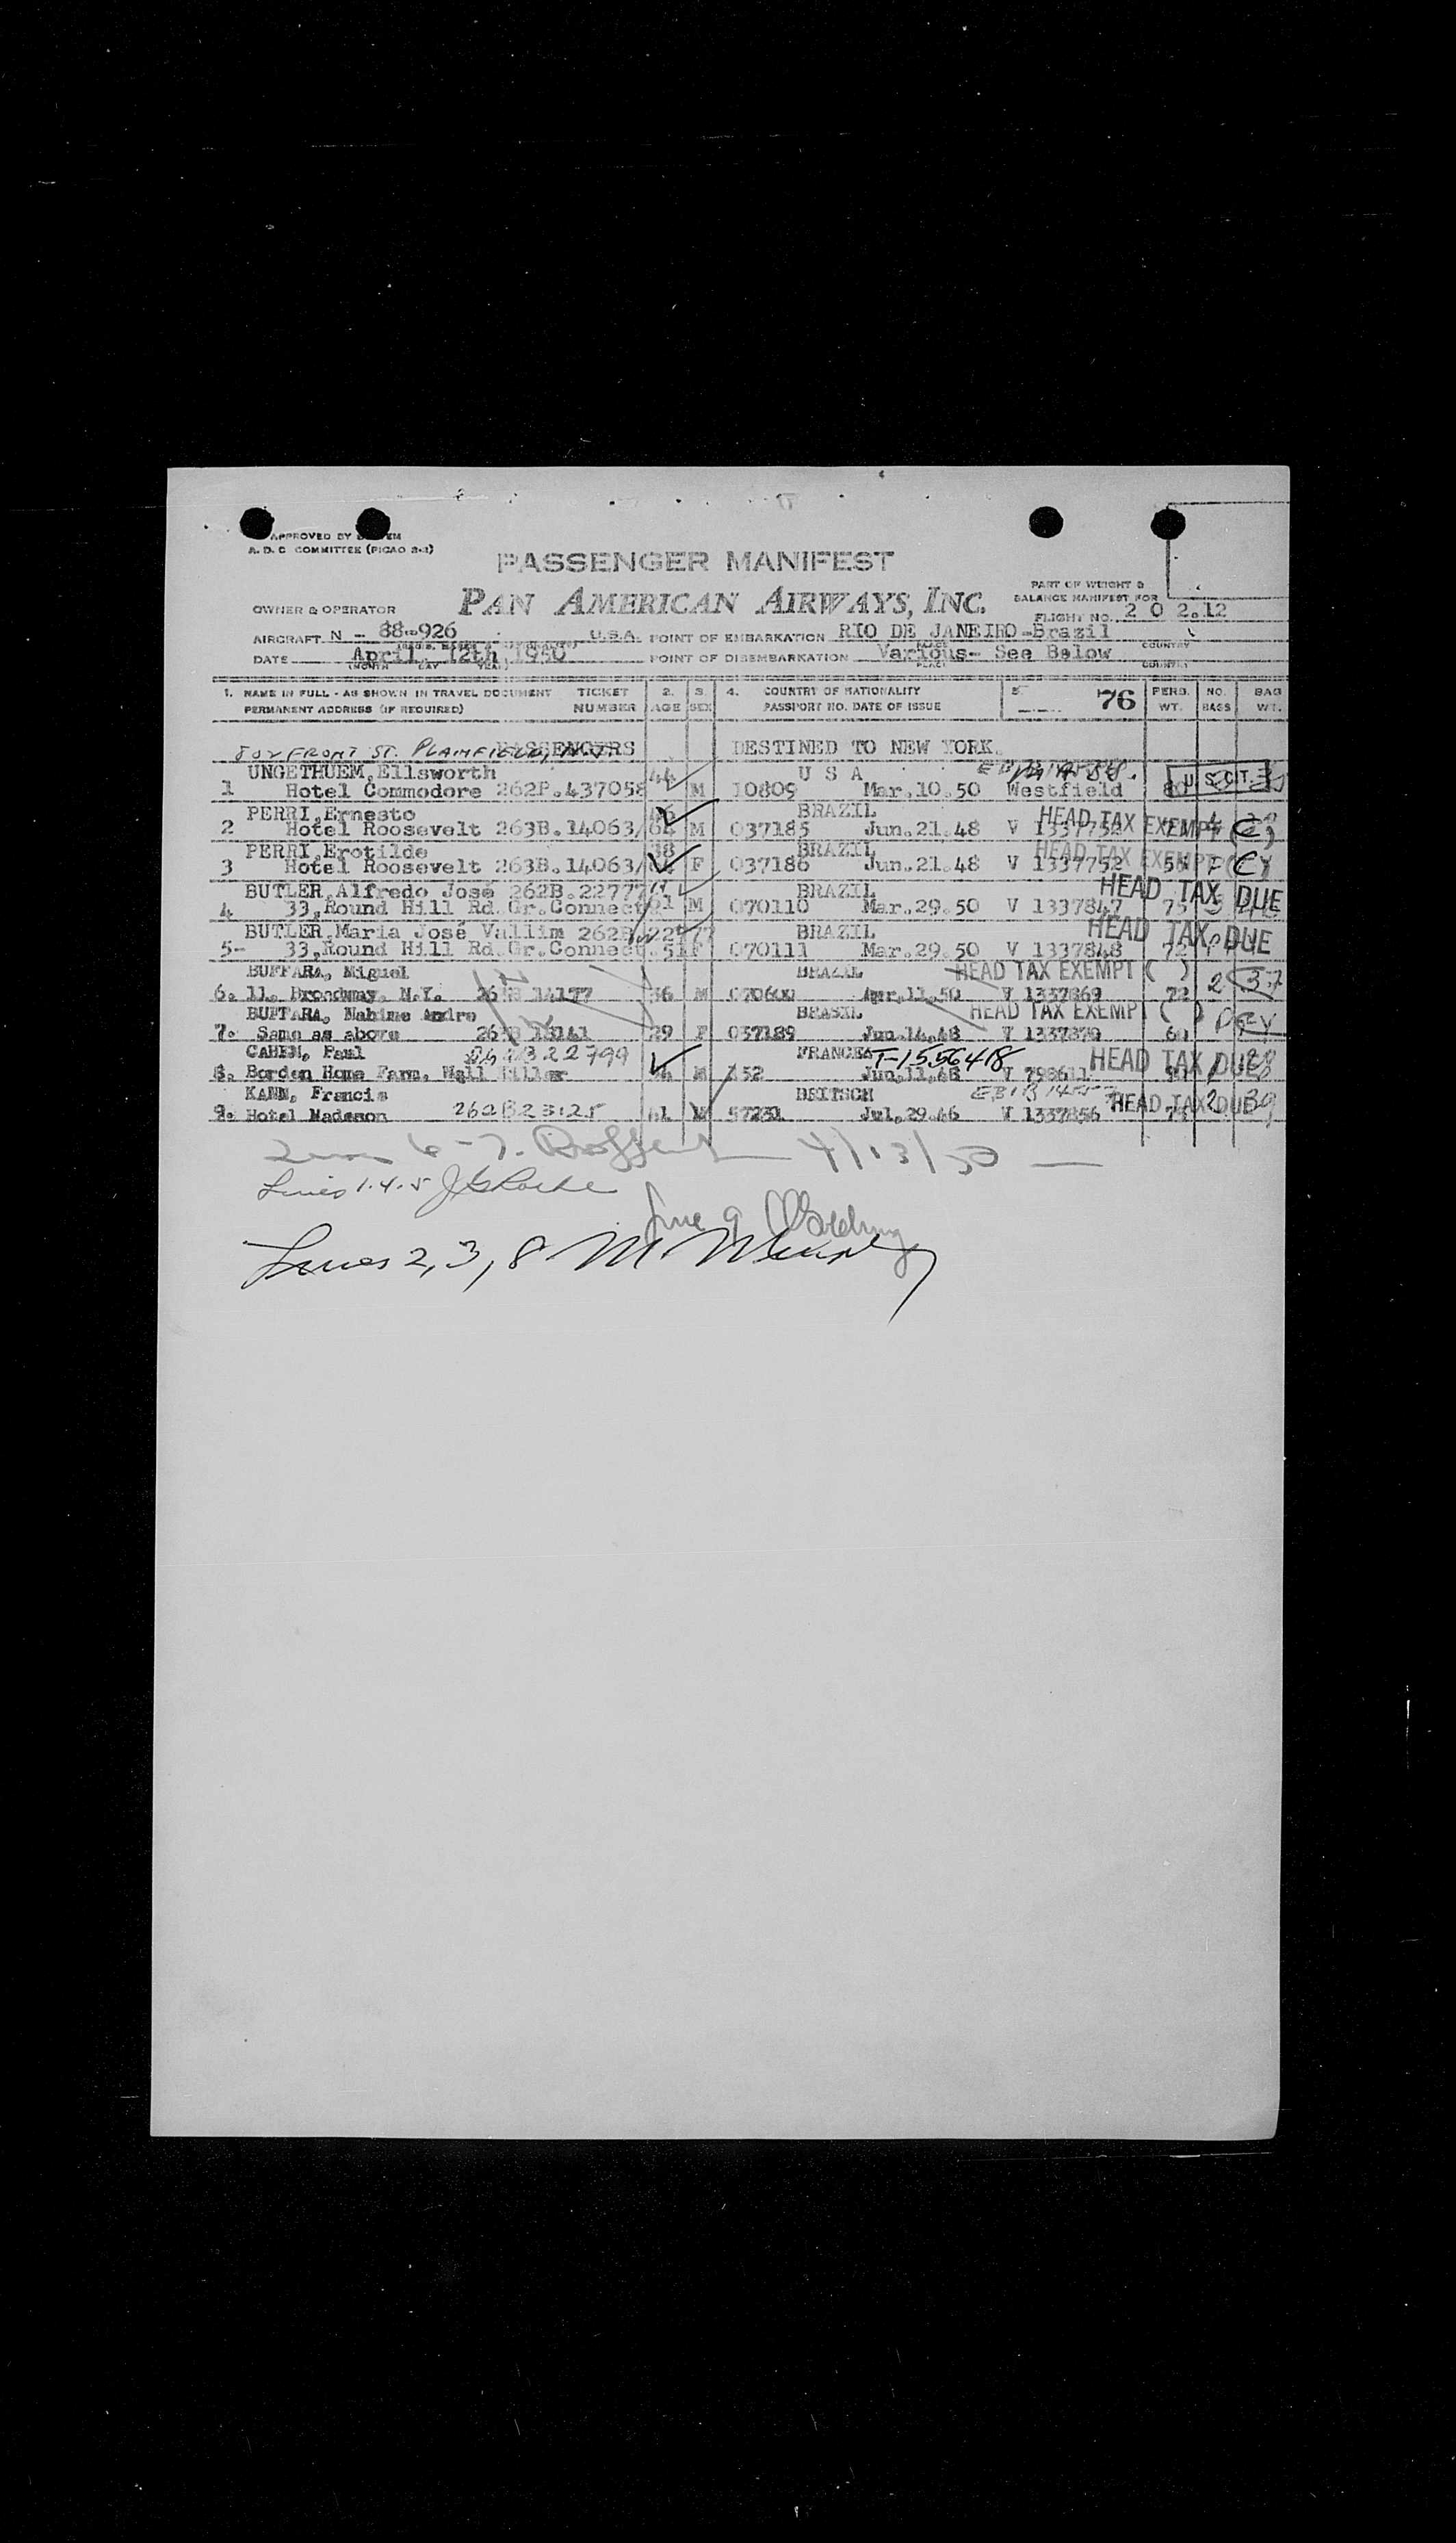 APPROVED BY
A. D. C COMMITTEE (PICAO 2-1)
PASSENGER MANIFEST
PAN AMERICAN AIRWAYS, INC.
PART OF WEIGHT &
BALANCE MANIFEST FOR
FLIGHT NO. 2 0 2.12
OWNER & OPERATOR
AIRCRAFT N - 88-926 U.S.A. POINT OF EMBARKATION RIO DE JANEIRO-Brazil
DATE April 12th, 1950 POINT OF DISEMBARKATION Various- See Below
1. NAME IN FULL - AS SHOWN IN TRAVEL DOCUMENT TICKET 2. 3. 4. COUNTRY OF NATIONALITY 5. 76 PERS. NO. BAG
PERMANENT ADDRESS (IF REQUIRED) NUMBER AGE SEX PASSPORT NO. DATE OF ISSUE WT. BAGS WT.
FRONT ST. PLAINFIELD, PASSENGERS DESTINED TO NEW YORK.
UNGETHUEM, Ellsworth 44 U S A U S CIT.
1 Hotel Commodore 262P.437058 M 10809 Mar.10.50 Westfield
PERRI, Ernesto BRAZIL HEAD TAX EXEMPT
2 Hotel Roosevelt 263B.14063/ M 037185 Jun.21.48 V 1337752
PERRI, Erotilde 38 BRAZIL HEAD TAX EXEMPT
3 Hotel Roosevelt 263B.14063/ F 037186 Jun.21.48 V 1337752
BUTLER, Alfredo José 262B.22777 BRAZIL HEAD TAX DUE
4 33, Round Hill Rd. Gr. Connect. 61 M 070110 Mar.29.50 V 1337847 75
BUTLER, Maria José Vallim 262B 22777 BRAZIL HEAD TAX DUE
5- 33, Round Hill Rd. Gr. Connect. 51 F 070111 Mar.29.50 V 1337848 72
BUFFARA, Miguel BRAZIL HEAD TAX EXEMPT ( ) 2 37
6. 11. Broadway, N.Y. M 070600 Apr.11.50 V 1337869 72
BUFFARA, Nahime Andre BRASIL HEAD TAX EXEMPT ( )
7. Same as above 29 F 037189 Jun.14.48 V 1337870
CAHEN, Paul 22799 FRANCE T-1556418 HEAD TAX DUE
8. Borden Home Farm, Wall M 352 Jun.11.48 V 798611
KANN, Francis 262B23125 HEAD TAX DUE
9. Hotel Madeson 61 M 57231 Jul.29.46 V 1337856
6-7. 4/13/50
Lines 1.4.5
Line 9
Lines 2, 3, 8 M